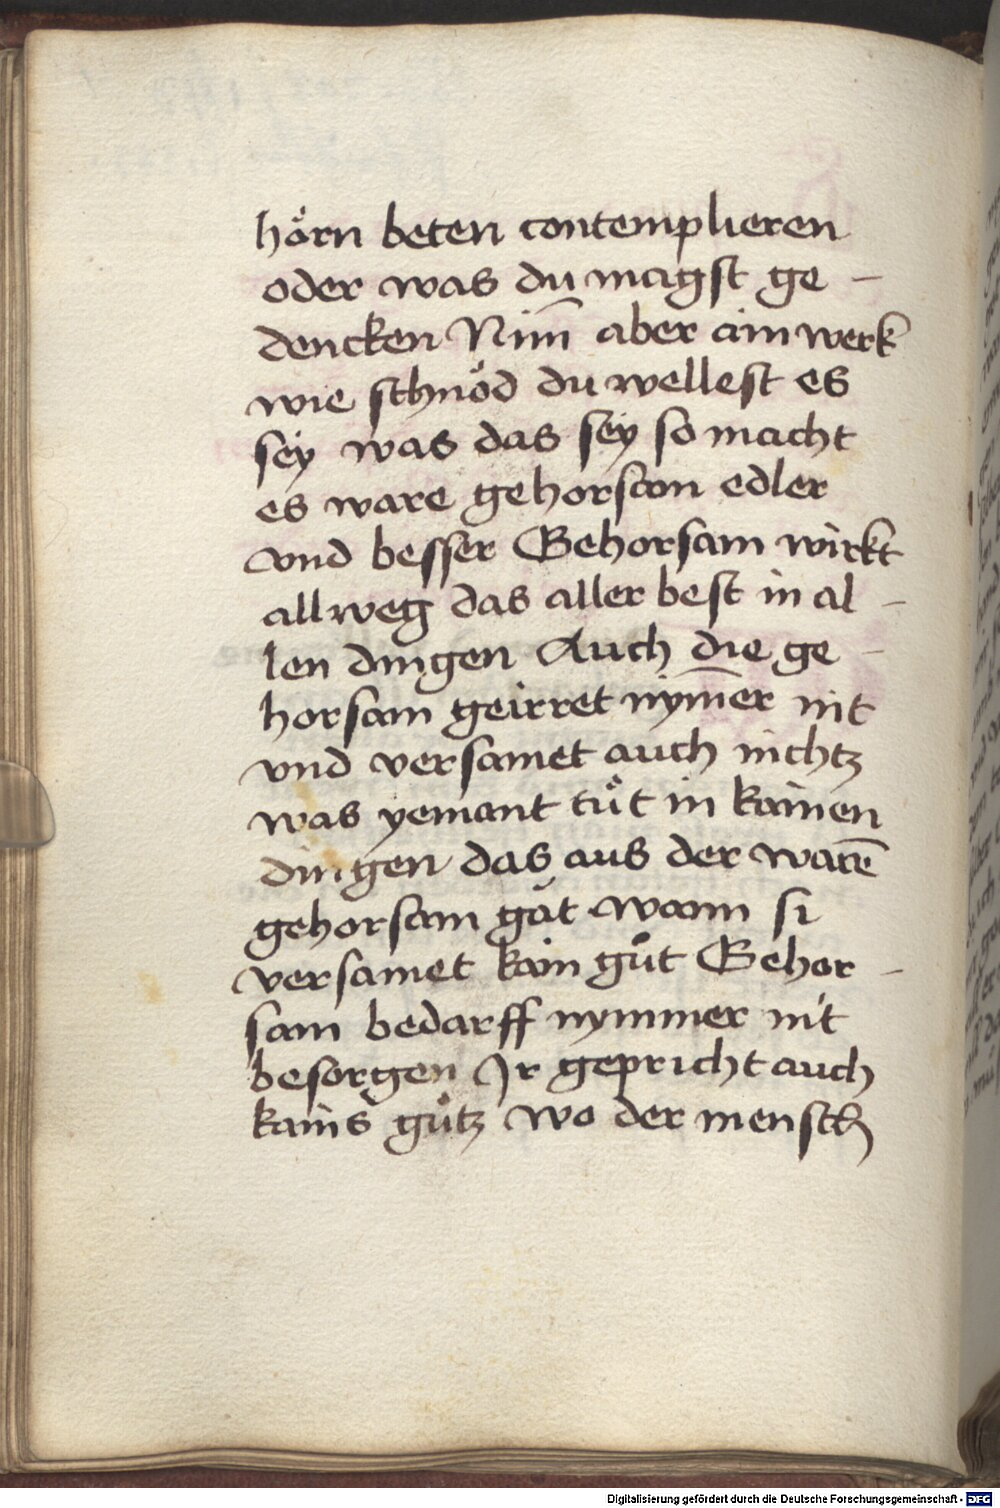 hörn beten contemplieren
oder was du magst ge -
dencken Nim̄ aber ain werk
wie schnöd du wellest es
sey was das sey so macht
es ware gehorsam edler
vnd besser Gehorsam wirkt
allweg das aller best in al -
len dingen Auch die ge -
horsam geirret nym̄er nit
vnd versamet auch nichtz
was yemant tůt in kainen
dingen das aus der warē
gehorsam gät wann si
versamet kain gůt Gehor -
sam bedarff nymmer nit
besorgen Ir gepricht auch
kains gůtz wo der mensch
Digitalisierung gefördert durch die Deutsche Forschungsgemeinschaft - DFG